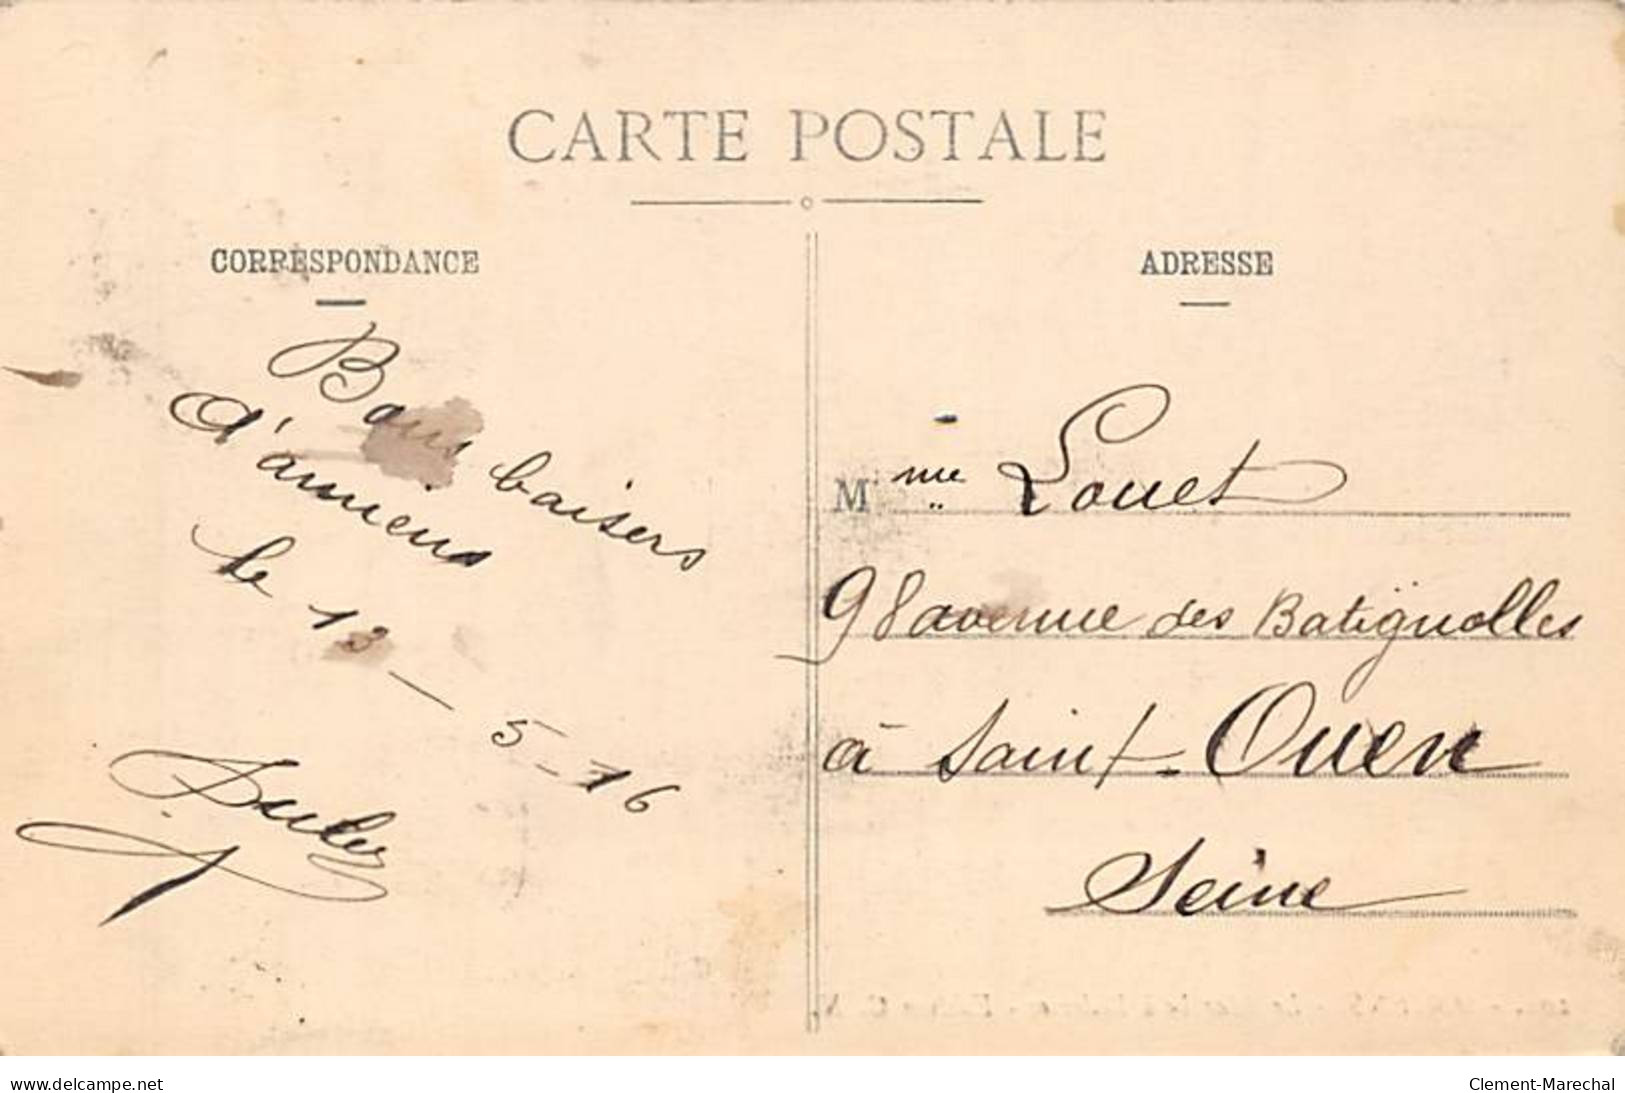 CARTE POSTALE
CORRESPONDANCE
Bons baisers
d'amiens
le 13 - 5 - 16
ADRESSE
Mme Louet
98 avenue des Batignolles
à Saint-Ouen
Seine
www.delcampe.net
Clement-Marechal